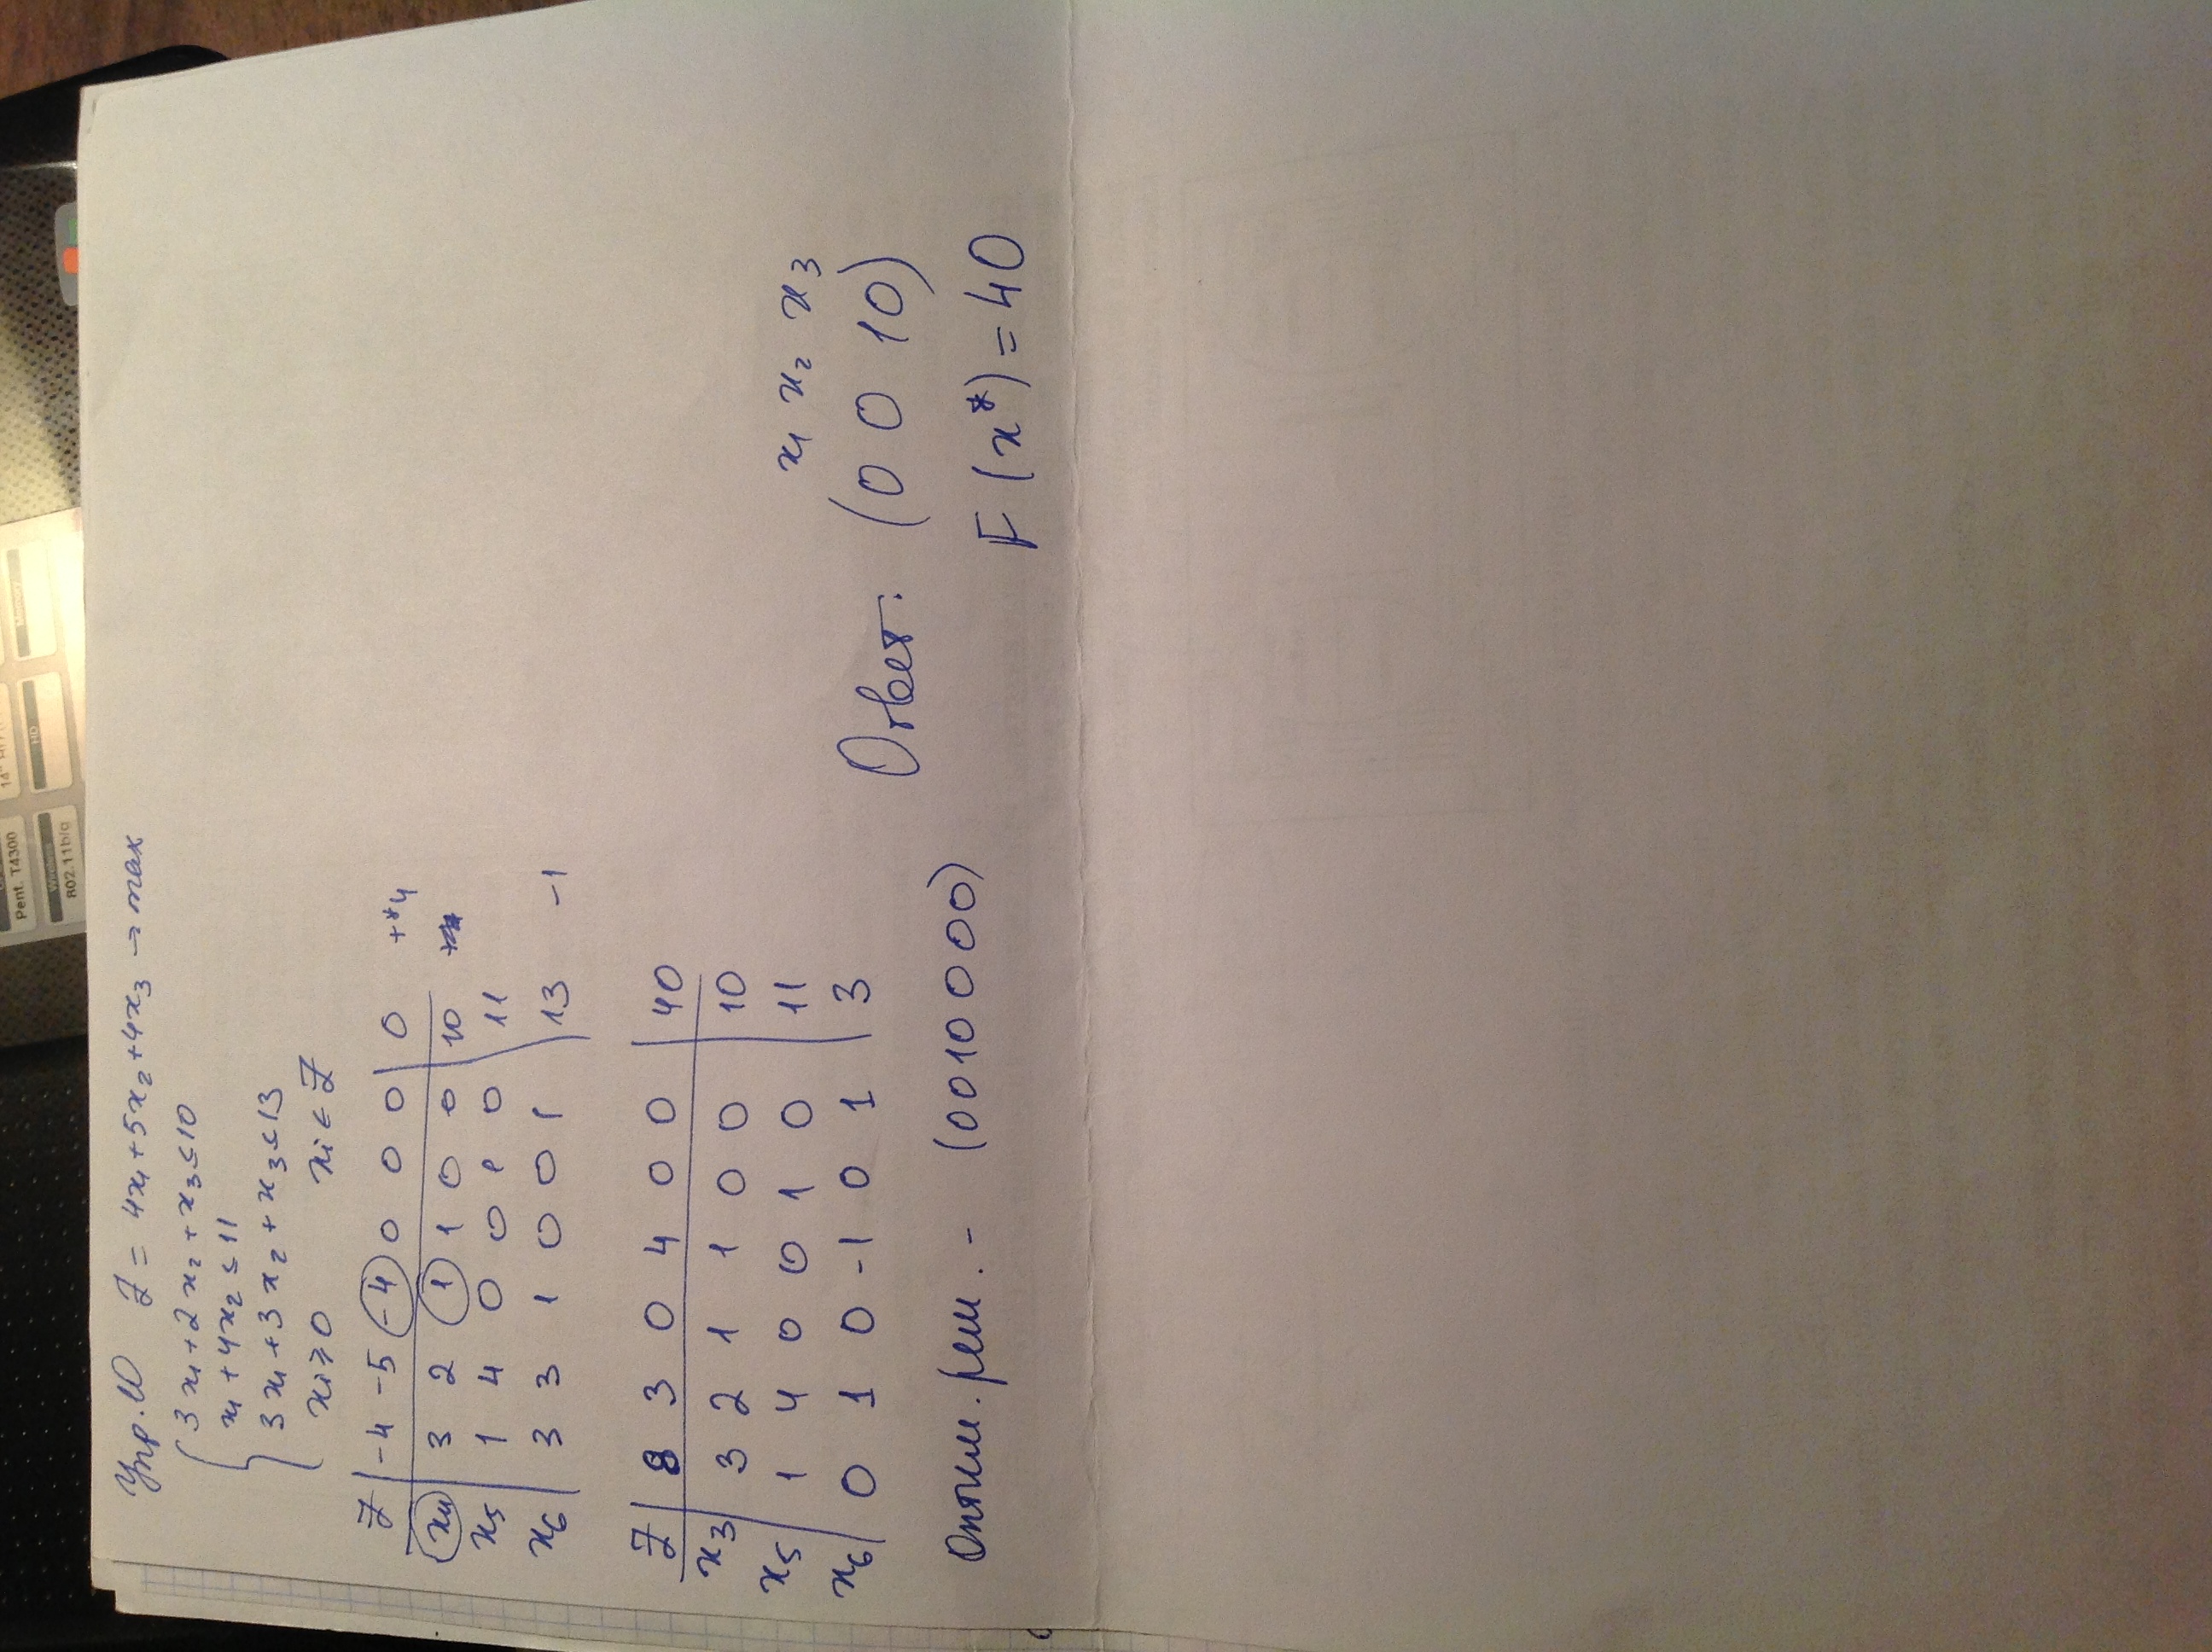 Упр. 10 Z = 4x₁+5x₂+4x₃ → max
3x₁+2x₂+x₃≤10
x₁+4x₂≤11
3x₁+3x₂+x₃≤13
xi≥0 xi ∈ Z
Z -4 -5 -4 0 0 0 0 +*4
x₄ 3 2 1 1 0 0 10
x₅ 1 4 0 0 1 0 11
x₆ 3 3 1 0 0 1 13 -1
Z 8 3 0 4 0 0 40
x₃ 3 2 1 1 0 0 10
x₅ 1 4 0 0 1 0 11
x₆ 0 1 0 -1 0 1 3
Оптим. реш. - (0 0 10 0 0 0)
x₁ x₂ x₃
Ответ: (0 0 10)
F (x*) = 40
Pent. T4300
802.11b/g
HD
Memory